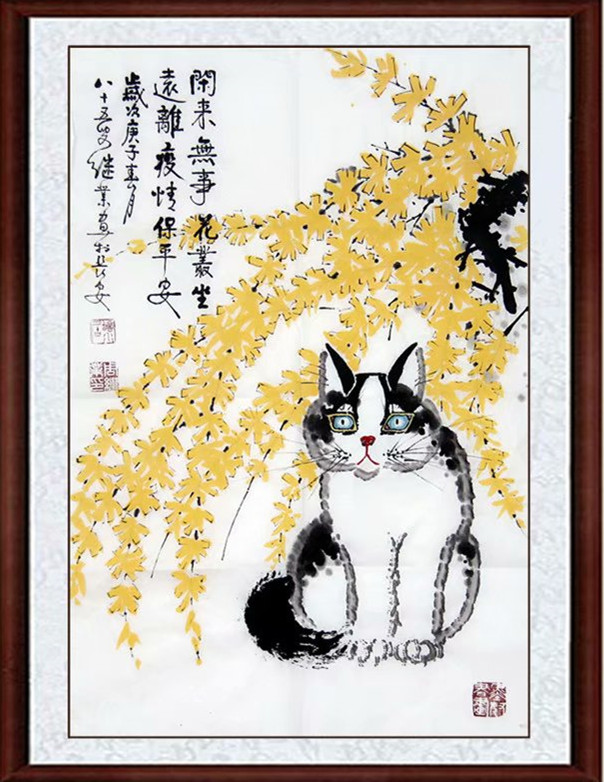 閑来無事花叢坐
遠離疫情保平安
歲次庚子春月
八十五叟继業畫於長安